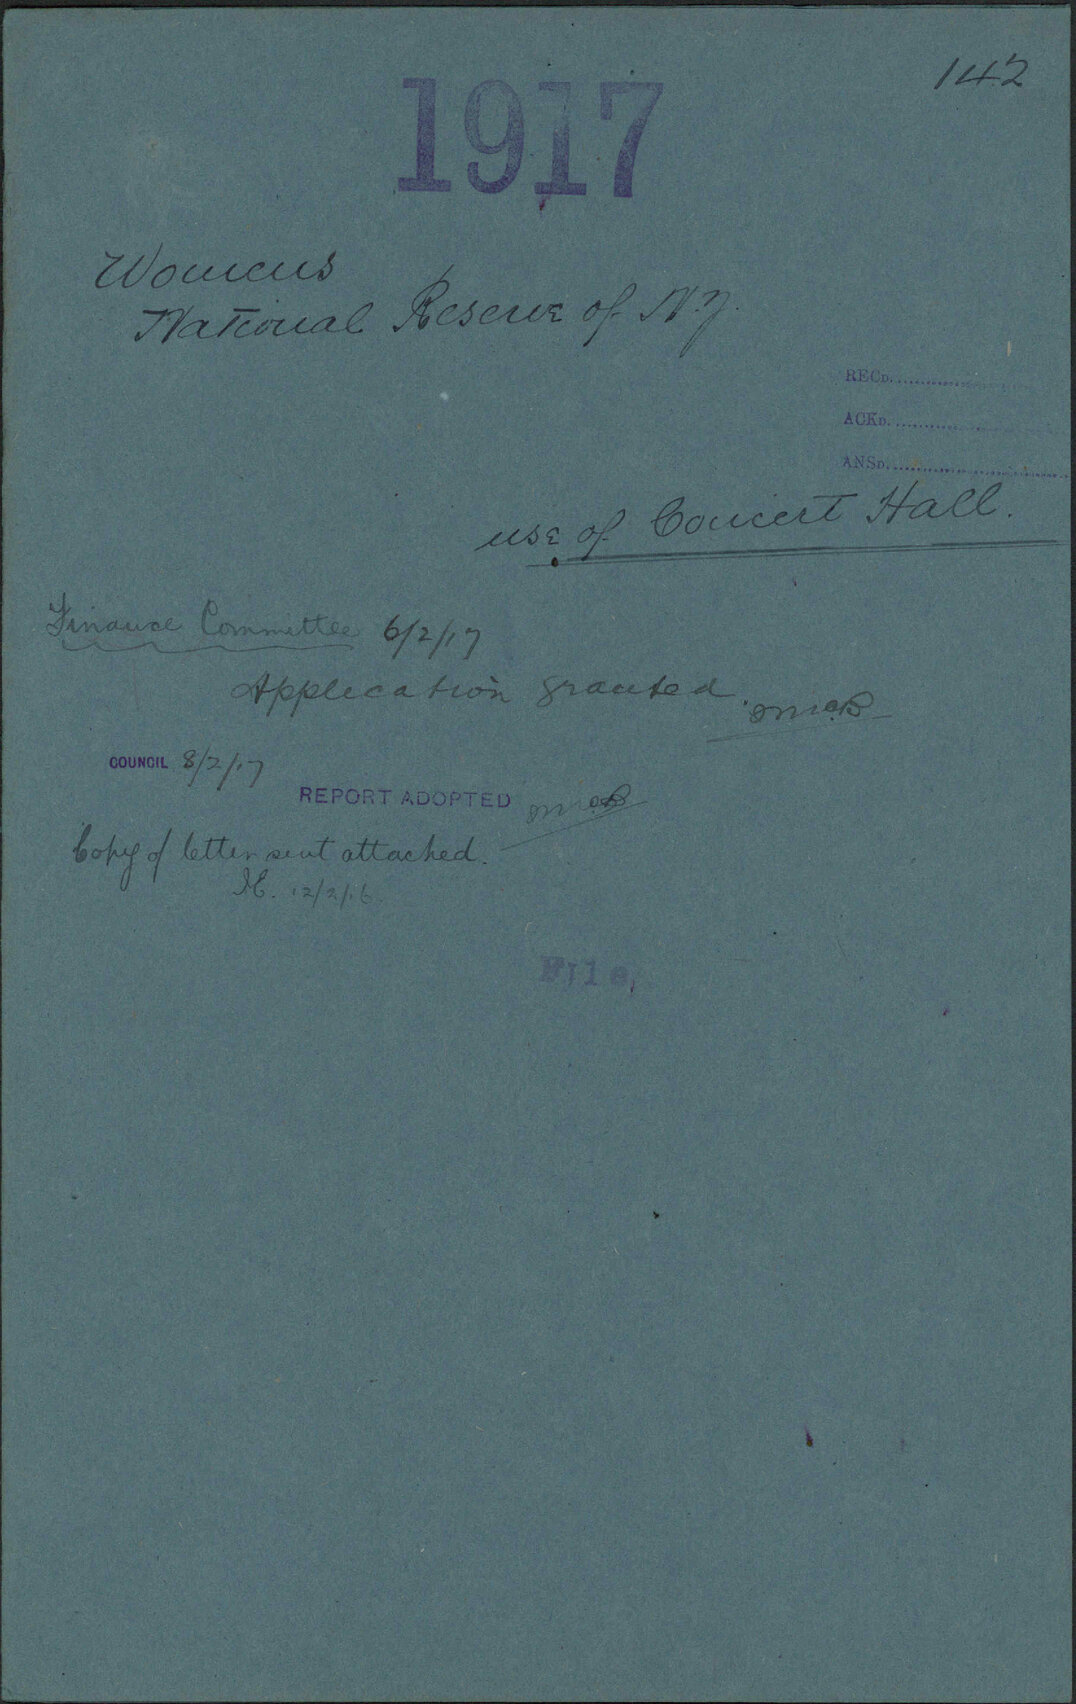 142
1917
Womens
National Reserve of N.Z.
RECD.
ACKD.
ANSD.
use of Concert Hall.
Finance Committee 6/2/17
Application granted
COUNCIL 8/2/17
REPORT ADOPTED
Copy of letter sent attached.
12/2/16
File,